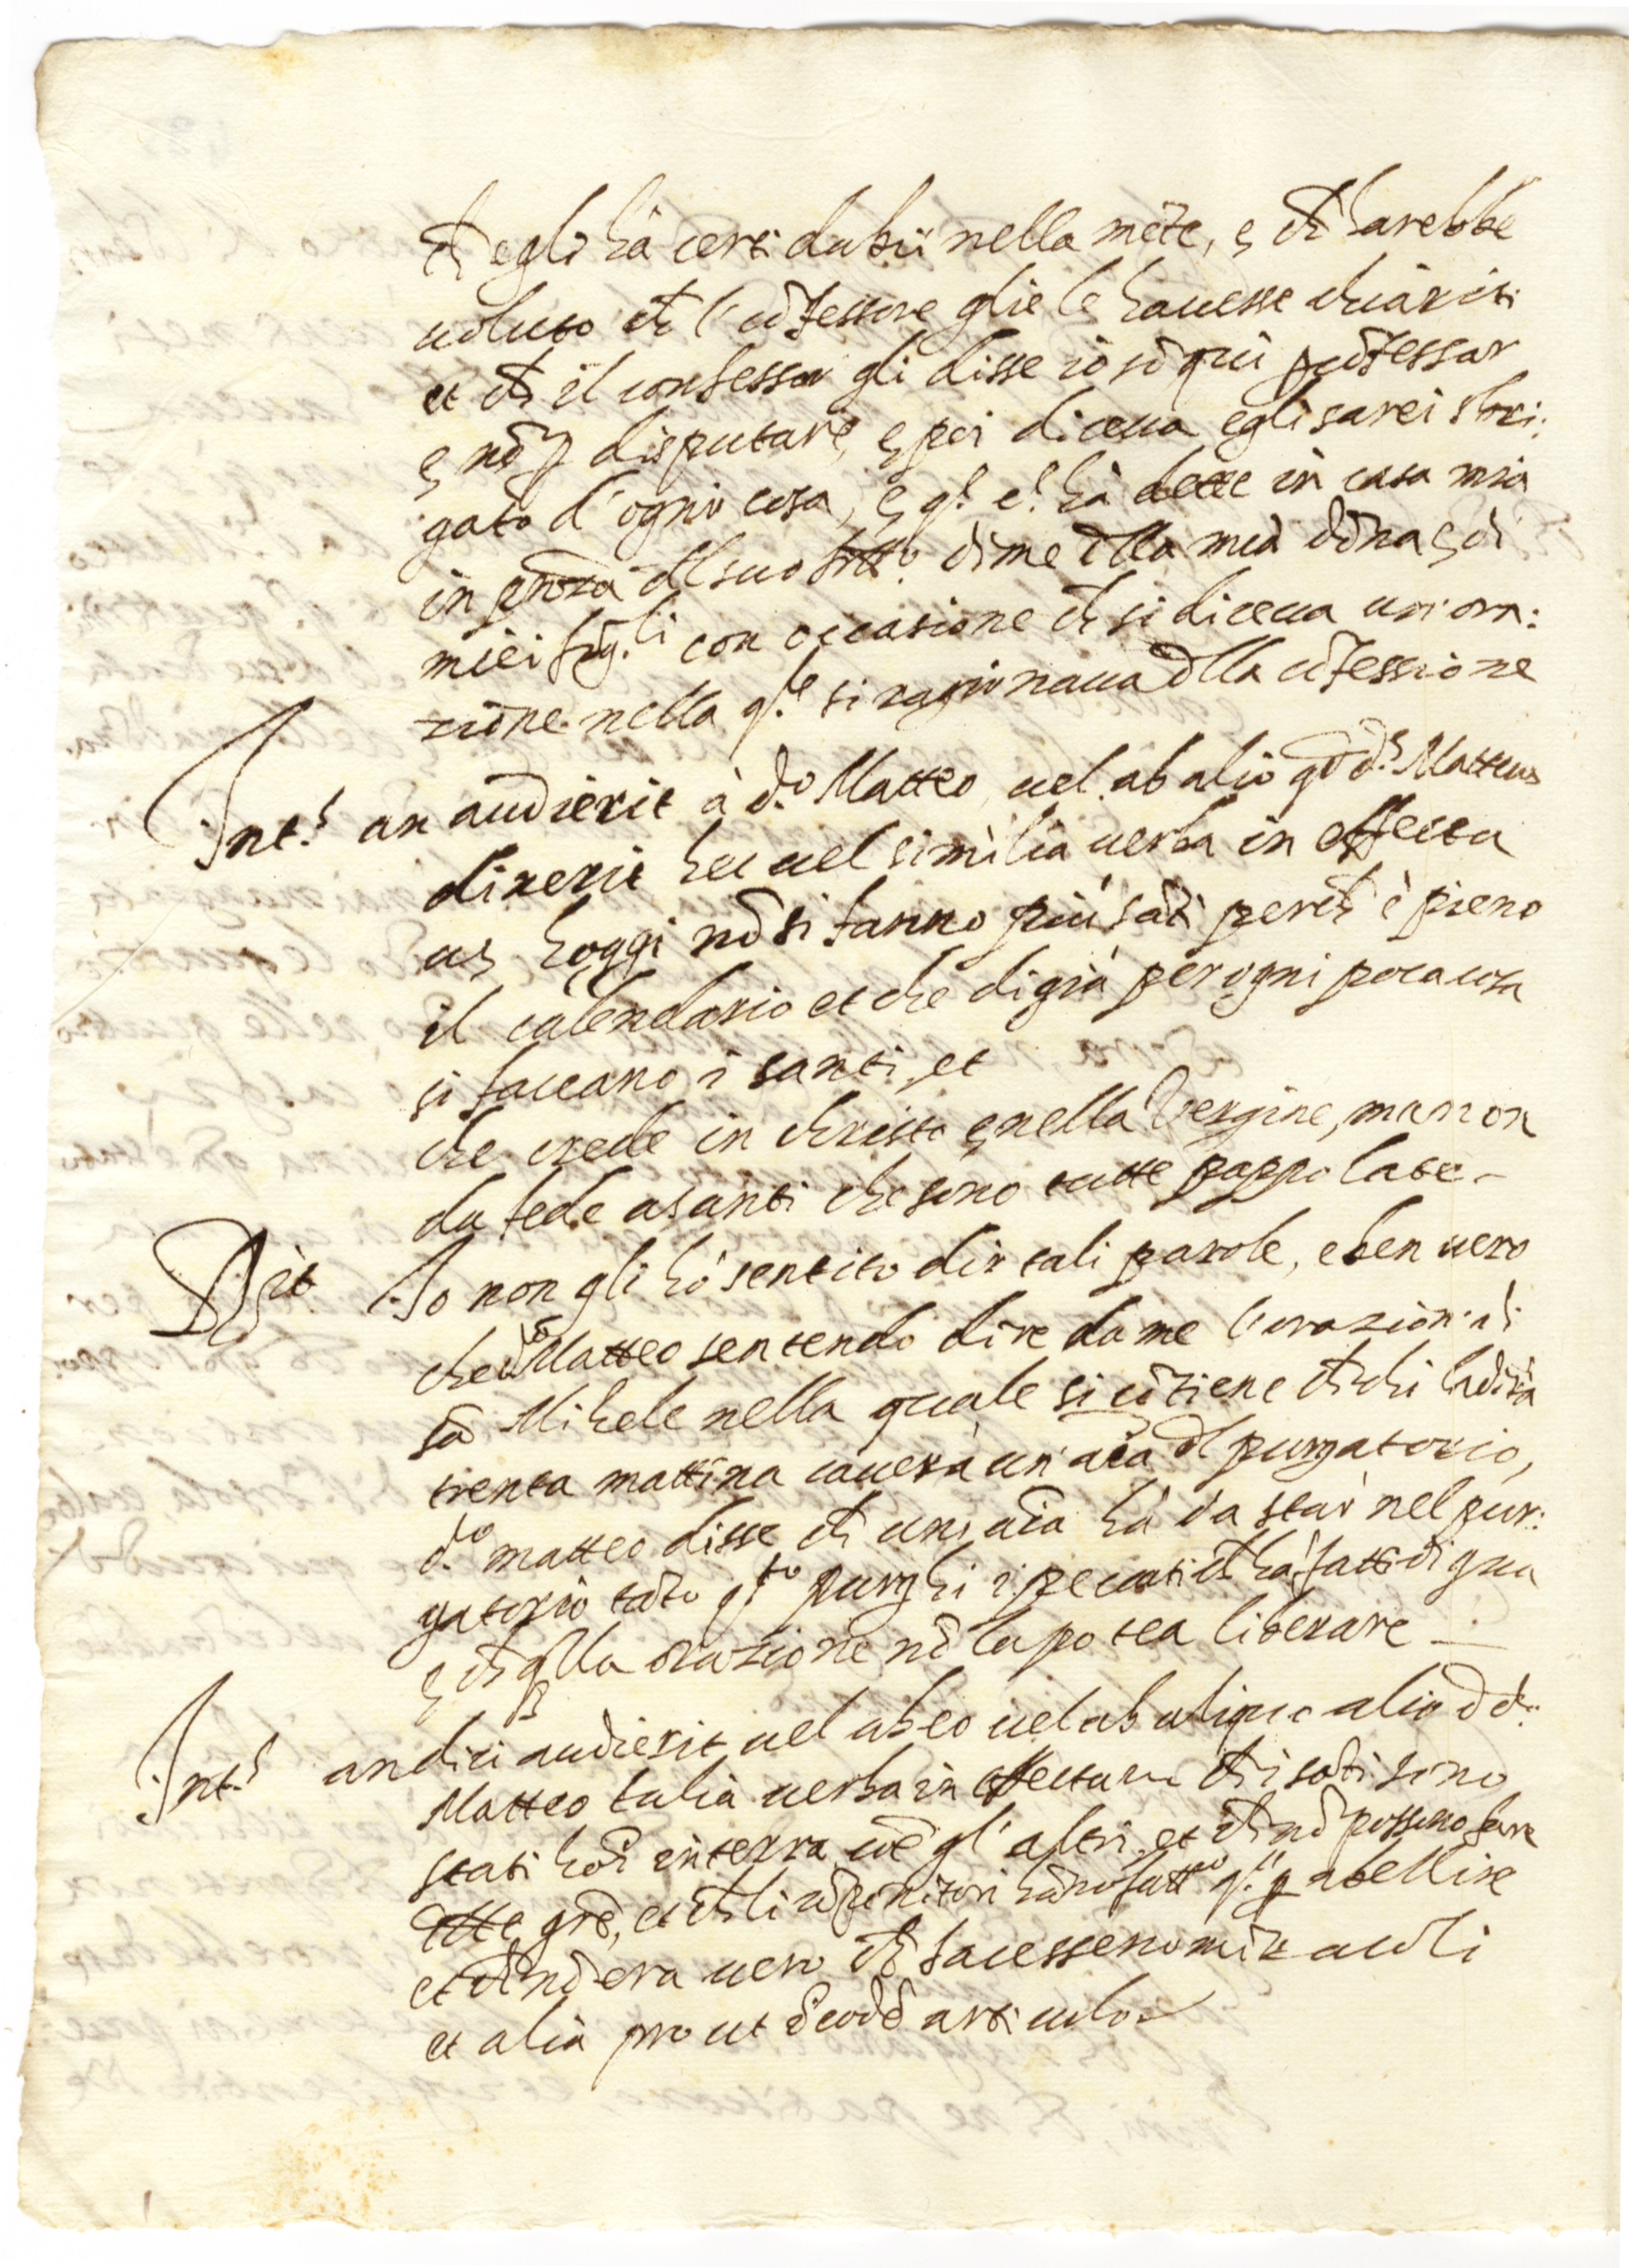 ch egli hà certi dubii nella mēte, e ch harebbe
uoluto ch l cōfessore glie le hauesse chiariti
et ch il confessor gli disse io sō quì p cōfessar
e nō p disputare, e poi diceua egli sarei stri:
gato d'ogni cosa, e q.o l'hà dette in casa mia
in p̄nza dl suo di me dlla mia dōna e di
miei fig.li con occasione ch si diceua un'ora:
zione nella q.le si ragionaua dlla cōfessione
Int.s an audierit à d.o Matteo, uel ab alio qd d.s Matteus
dixerit hec uel similia uerba in effectu
us hoggi nō si fanno più sāti perch è pieno
il calendario et che di già per ogni poca cosa
si faceano i santi, et
che crede in christo e nella Vergine, ma non
da fede a santi che sono tutte pappolate.
R.it Io non gli hò sentito dir tali parole, e ben uero
che d.o Matteo sentendo dire da me l'orazion di
sā Mihele nella quale si cōtiene ch chi la dirà
trenta mattina cauerà un'aīa dl purgatorio,
d.o matteo disse ch un'aīa hà da star nel pur:
gatorio tāto q.to purghi i peccati ch hà fatti di qua
e ch q̄lla orazione nō la potea liberare
Int.s an dici audierit uel ab eo uel ab aliquo alio d d.o
Matteo talia uerba in effectum ch i sāti sono
stati hōi in terra cōe gl'altri, et ch nō possono fare
grē, et ch li cōponitori hāno fatto q.li p abellire
et ch nō era uero ch facesseno miracoli
et alia pro ut articulo